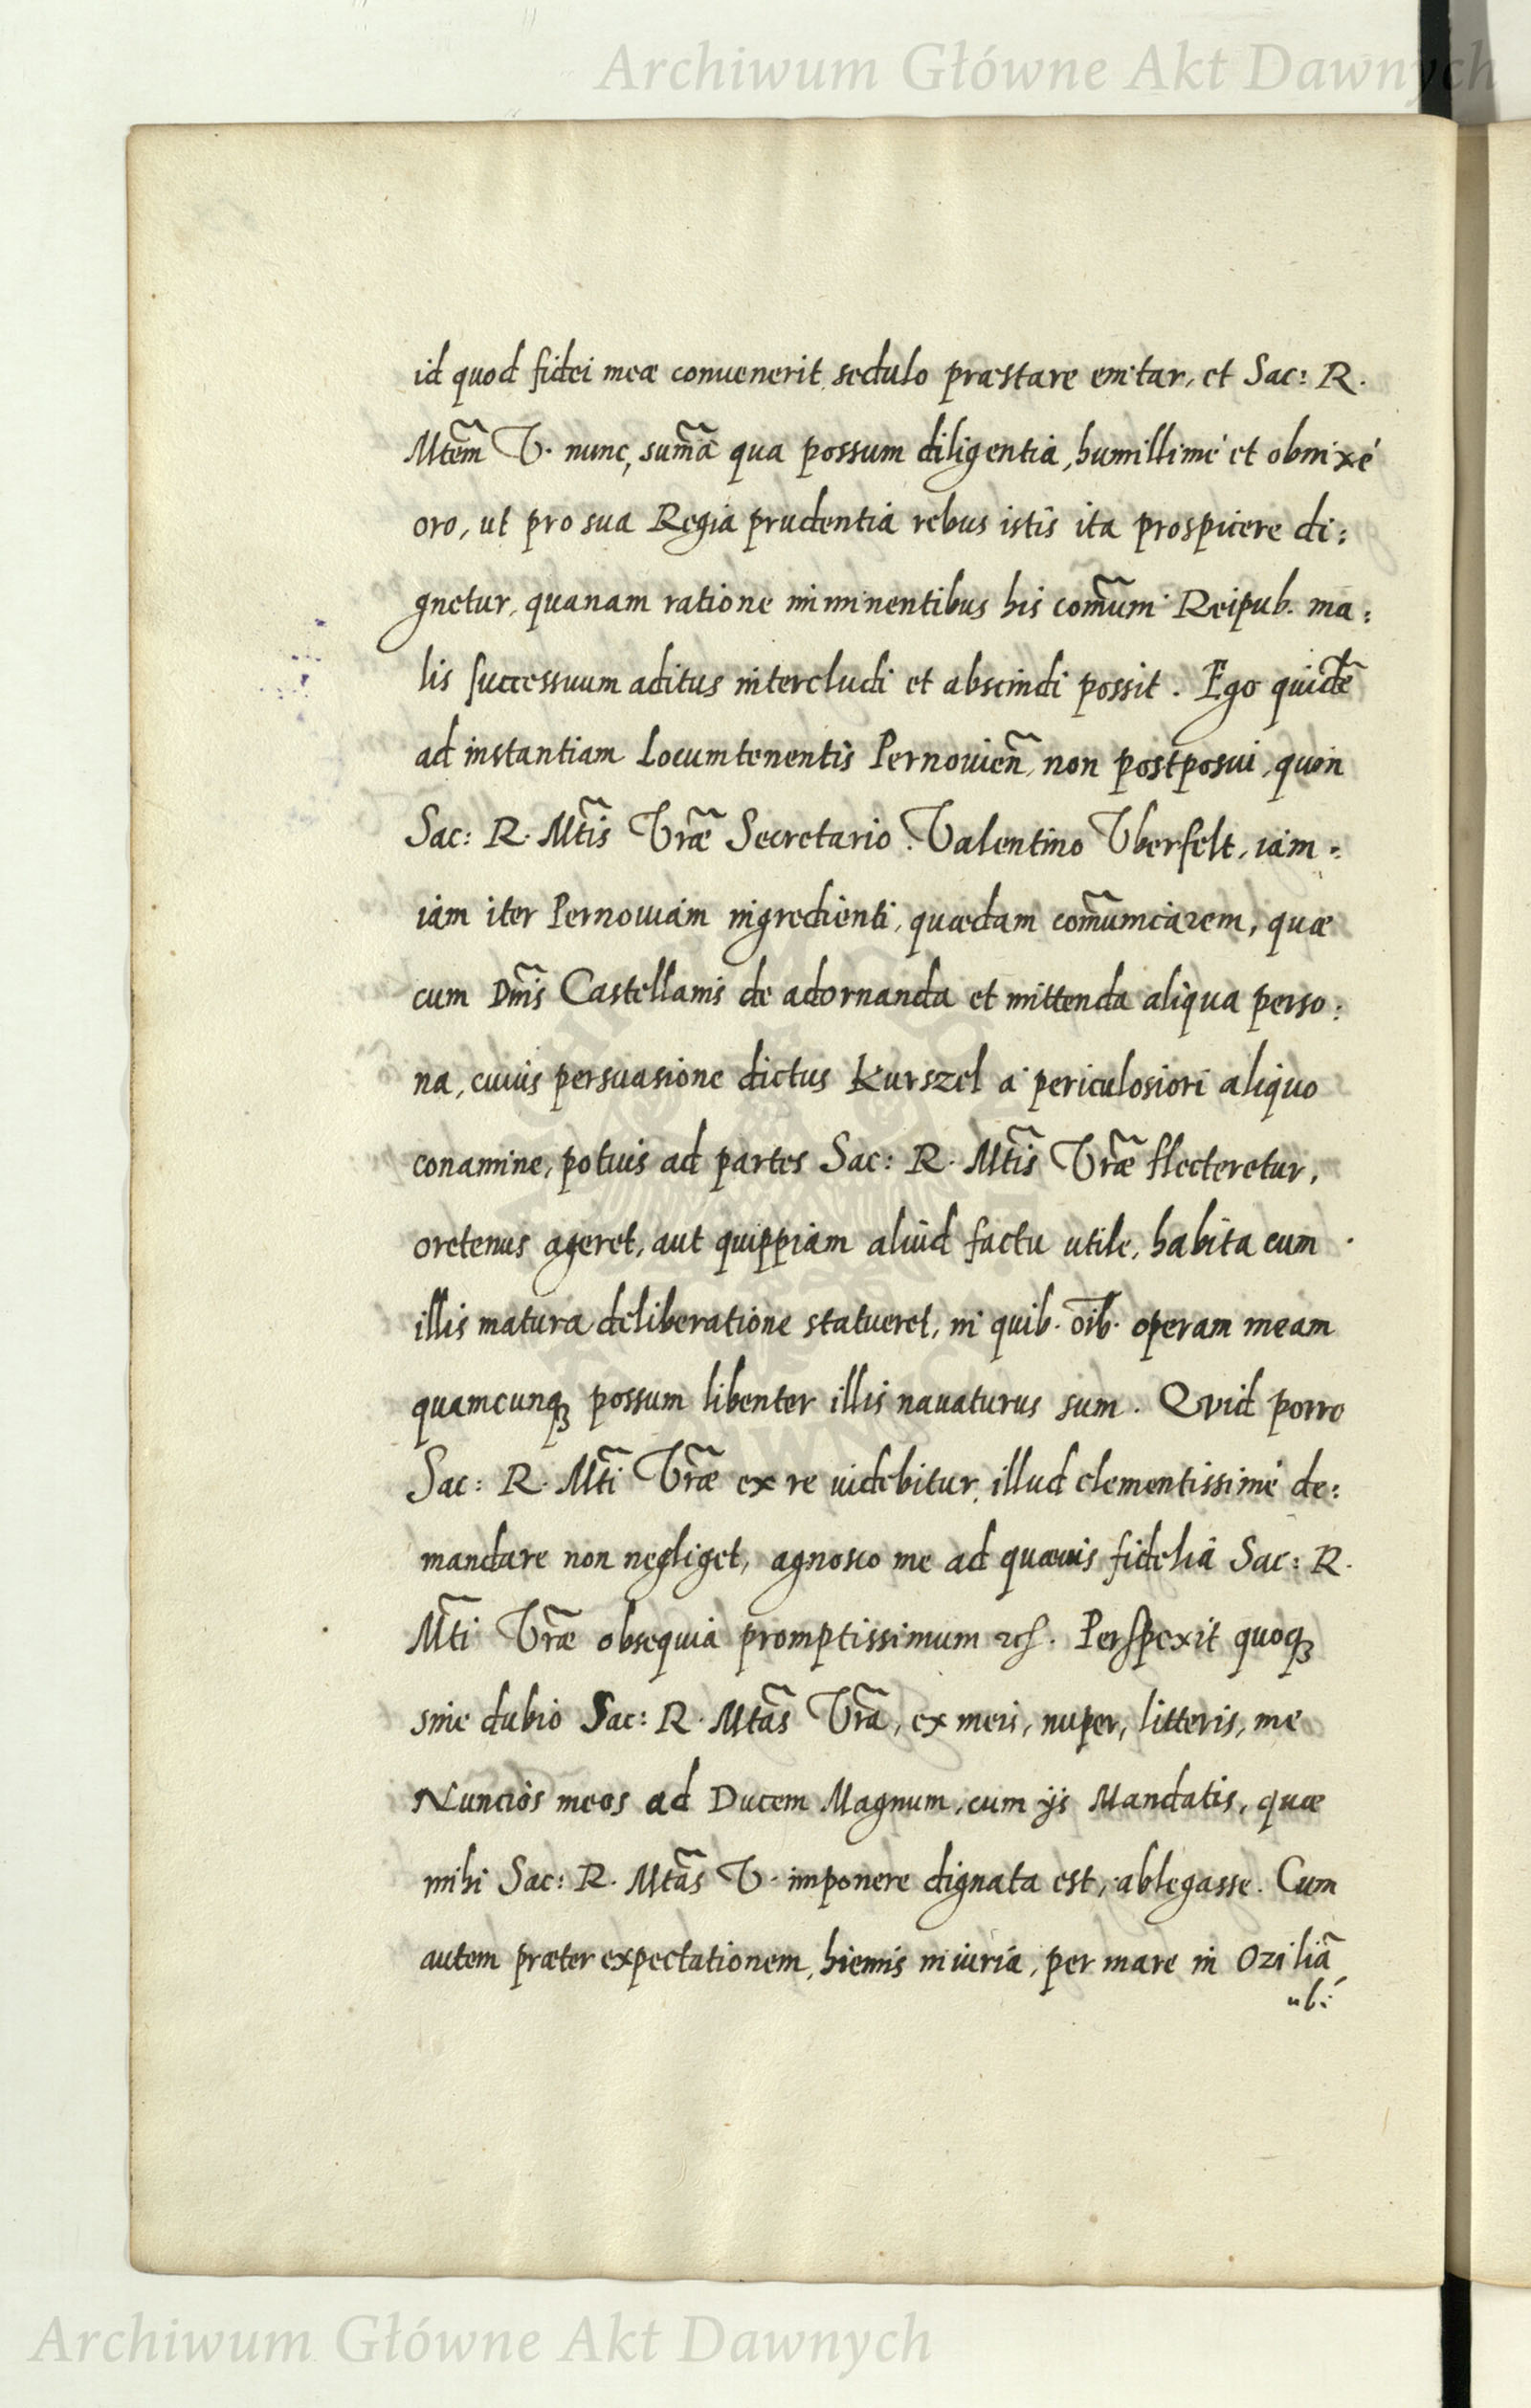 Archiwum Główne Akt Dawnych
id quod fidei meæ conuenerit, sedulo præstare enitar, et Sac: R.
Mtem̃ V. nunc, sum̃a qua possum diligentia, humillimè et obnixè
oro, ut pro sua Regia prudentia rebus istis ita prospicere di:
gnetur, quanam ratione imminentibus his com̃uni Reipub. ma:
lis successuum aditus intercludi et abscindi possit. Ego quidẽ
ad instantiam Locumtenentis Pernouieñ, non postposui, quin
Sac: R. Mt̃is Vr̃æ Secretario Valentino Vberfelt, iam:
iam iter Pernouiam ingredienti, quædam com̃unicarem, quæ
cum Dñis Castellanis de adornanda et mittenda aliqua perso:
na, cuius persuasione dictus Kurszel à periculosiori aliquo
conamine, potius ad partes Sac: R. Mt̃is Vr̃æ flecteretur,
oretenus ageret, aut quippiam aliud factu utile, habita cum
illis matura deliberatione statueret, in quib. oĩb. operam meam
quamcunq; possum libenter illis nauaturus sum. Quid porro
Sac: R. Mt̃i Vr̃æ ex re uidebitur, illud clementissimè de:
mandare non negliget, agnosco me ad quæuis fidelia Sac: R.
Mt̃i Vr̃æ obsequia promptissimum etc. Perspexit quoq;
sine dubio Sac: R. Mt̃as Vr̃a, ex meis, nuper, litteris, me
Nuncios meos ad Ducem Magnum, cum ijs Mandatis, quæ
mihi Sac: R. Mt̃as V. imponere dignata est, ablegasse. Cum
autem præter expectationem, hiemis iniuria, per mare in Oziliã
ubi
Archiwum Główne Akt Dawnych